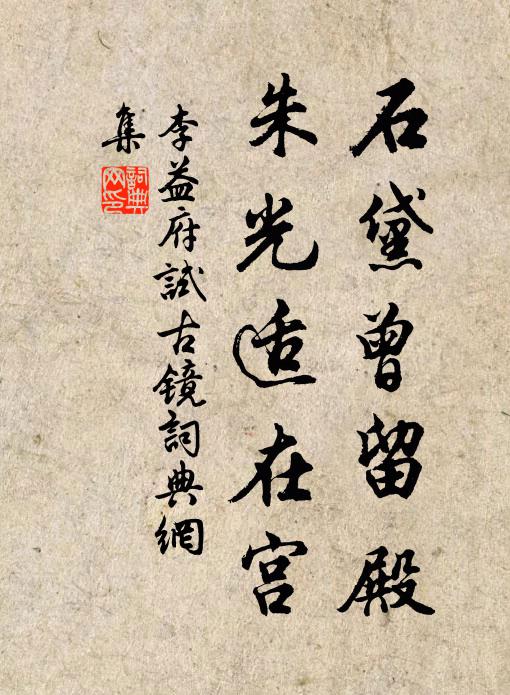 石黛曾留殿
朱光适在宫
李益府試古镜詞典網
集
詞典網印